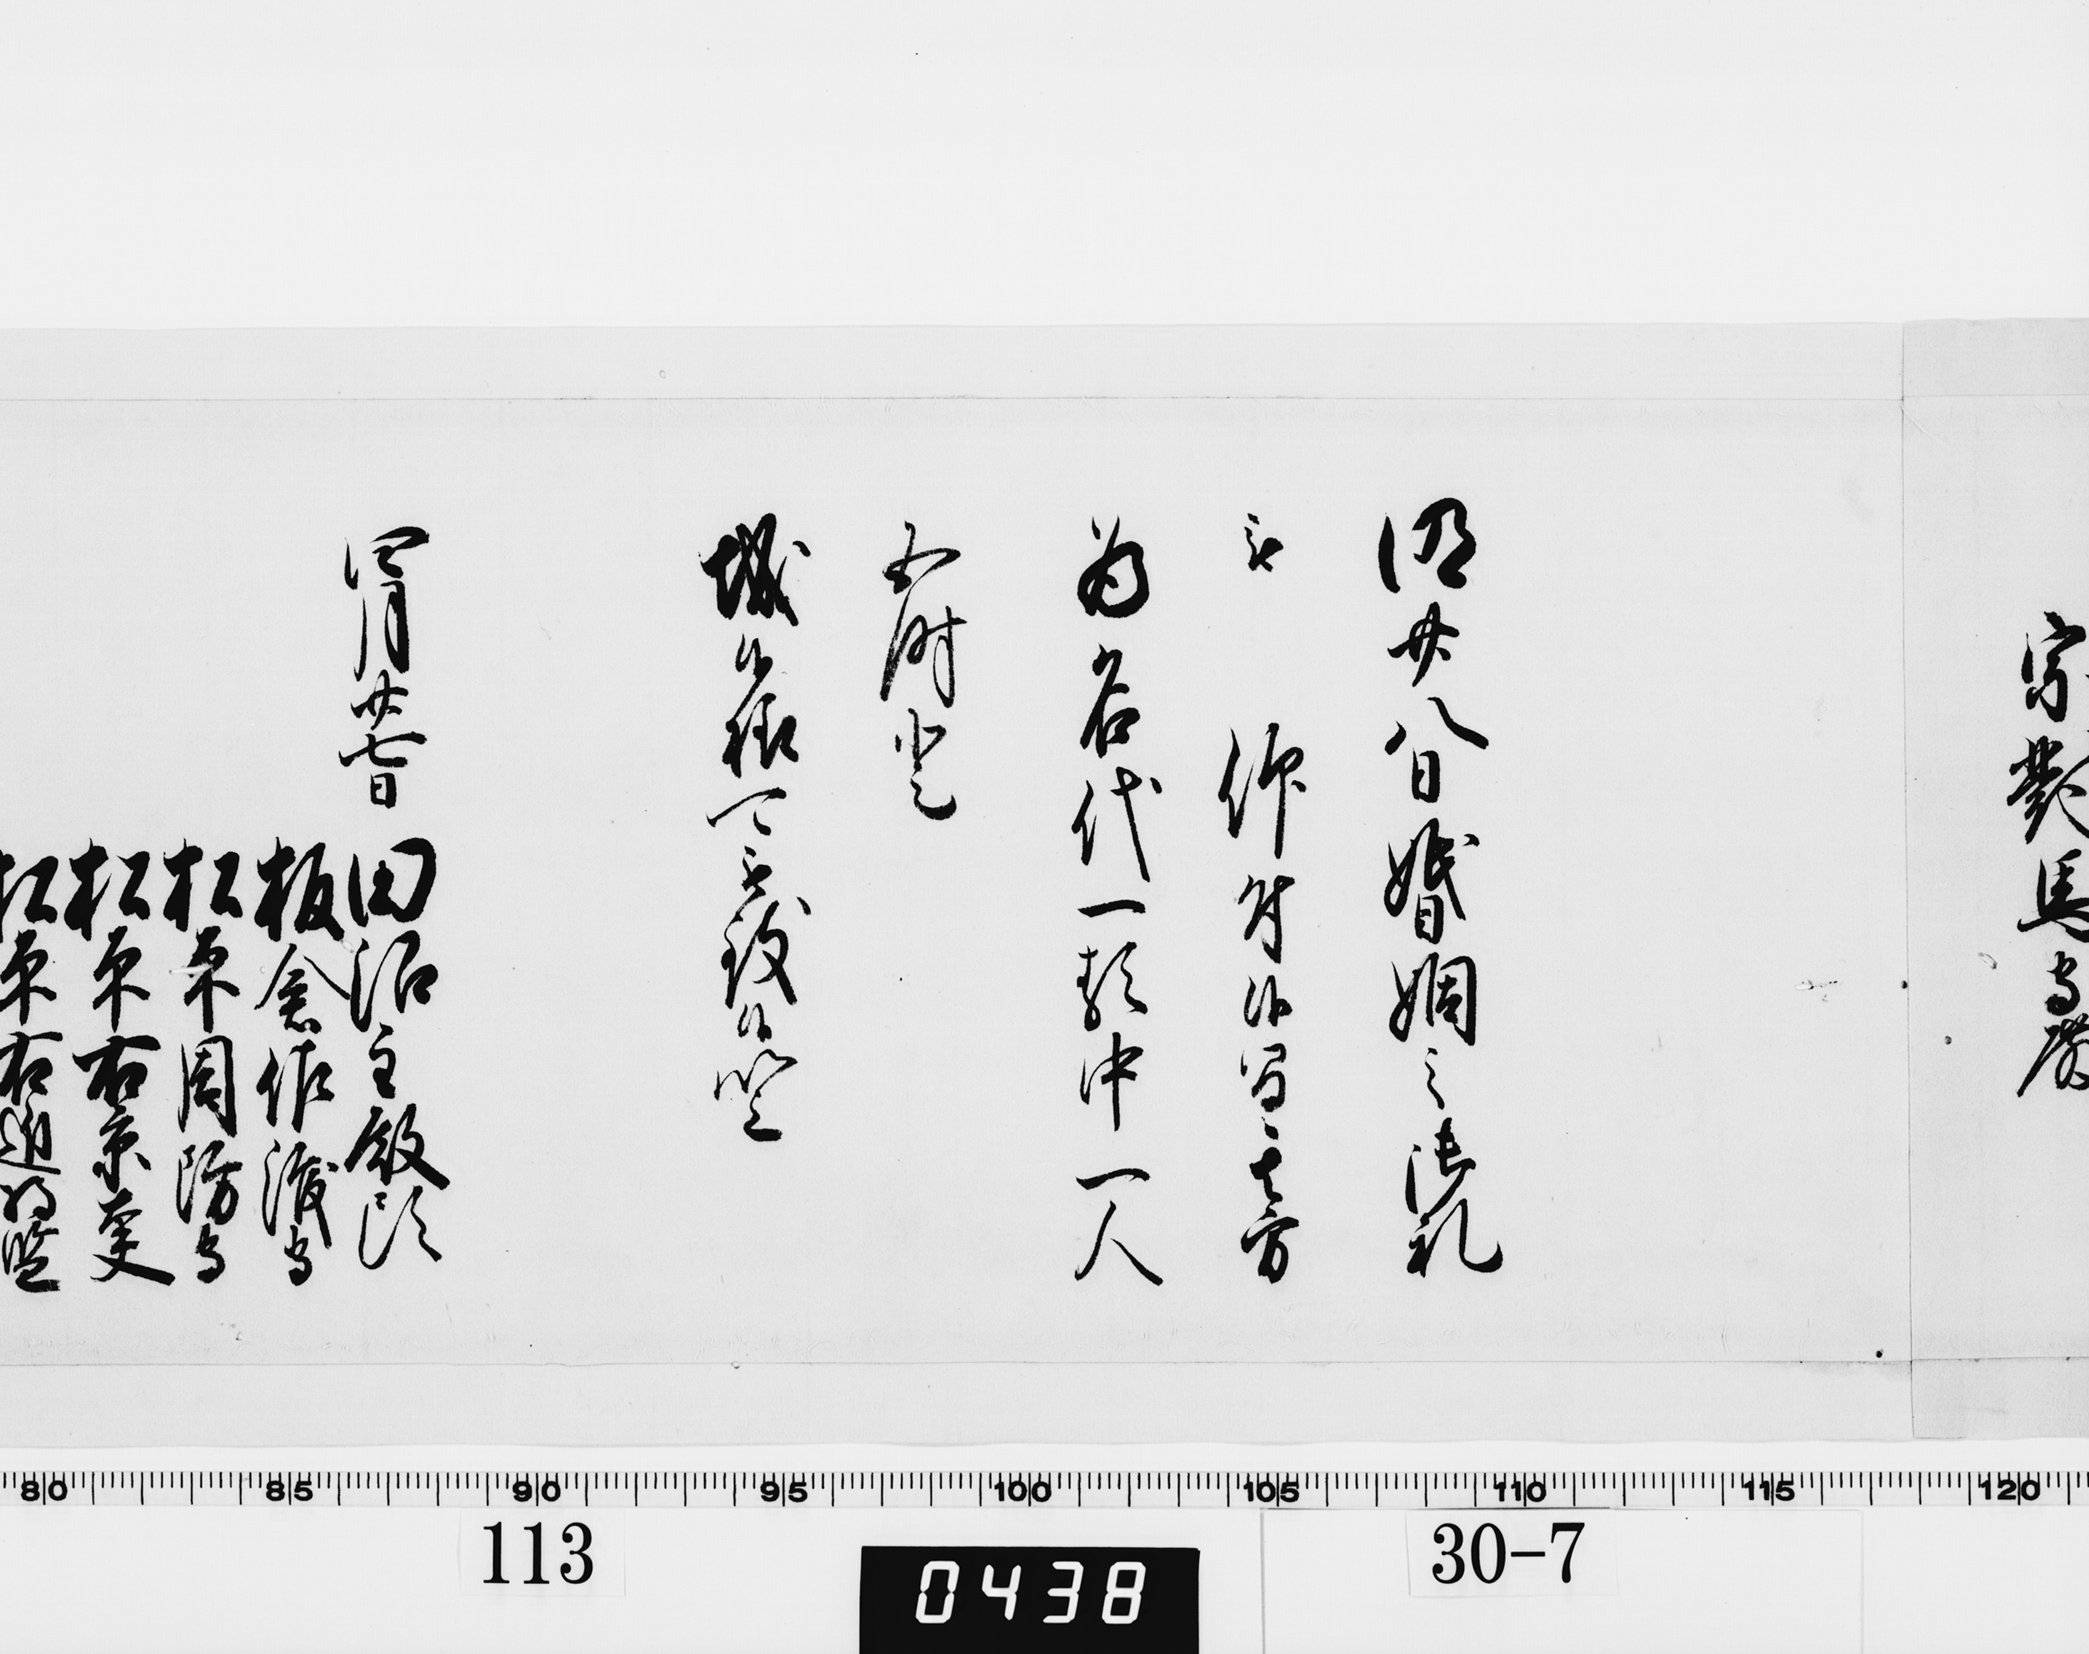 宗對馬守殿
明廿八日婚姻之御礼
被 仰付候間其方
為名代一類中一人
五時登
城候様可被致候以上
四月廿七日 田沼主殿頭
板倉佐渡守
松平周防守
松平右京大夫
松平右近将監
80 85 90 95 100 105 110 115 120
113
0438
30-7